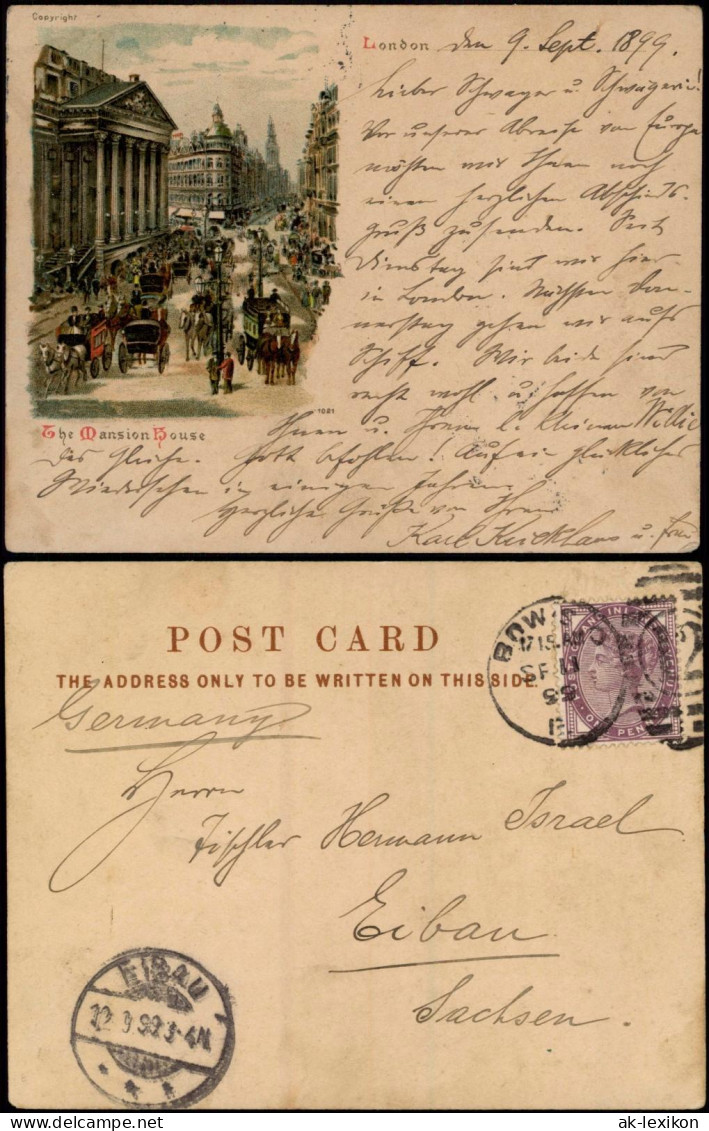 Copyright
London den 9. Sept. 1899.
Lieber Schwager u. Schwägerin!
Vor unserer Abreise von Europa
möchten wir Ihnen noch
einen herzlichen Abschieds-
gruß zusenden. Seit
Dienstag sind wir hier
in London. Nächsten Don-
nerstag gehen wir aufs
Schiff. Wir beide sind
recht wohl u. hoffen von
1021
The Mansion House
Ihnen u. Ihrem l. kleinen Willie
das Gleiche. Gott befohlen! Auf ein glückliches
Wiedersehen in einigen Jahren.
Herzliche Grüße von Ihrem
Karl u. Frau
POST CARD
THE ADDRESS ONLY TO BE WRITTEN ON THIS SIDE.
BOW
7.15 AM
SP 11
99
Germany
Herrn
Tischler Hermann Israel
Eibau
Sachsen.
EIBAU
9 99 3-4N
ak-lexikon.com